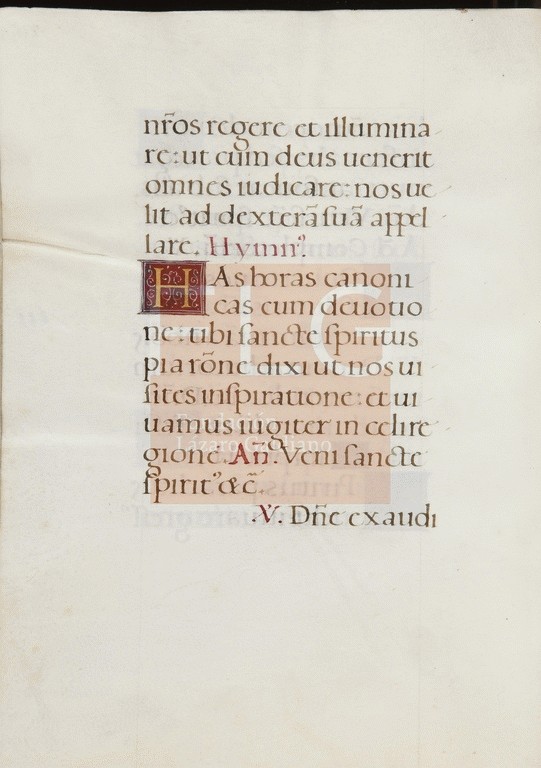 nr̃os regere et illumina
re: ut cũm deus uenerit
omnes iudicare: nos ue
lit ad dexterã ſuã appel
lare. Hymnꝰ.
HAs horas canoni
cas cum deuotio
ne: tibi ſancte ſpiritus
pia rõne dixi ut nos ui
ſites inſpiratione: et ui
uamus iugiter in celi re
gione. Añ. Veni ſancte
ſpiritꝰ &c̃.
.V. Dñe exaudi
FLG
Fundación
Lázaro Galdiano